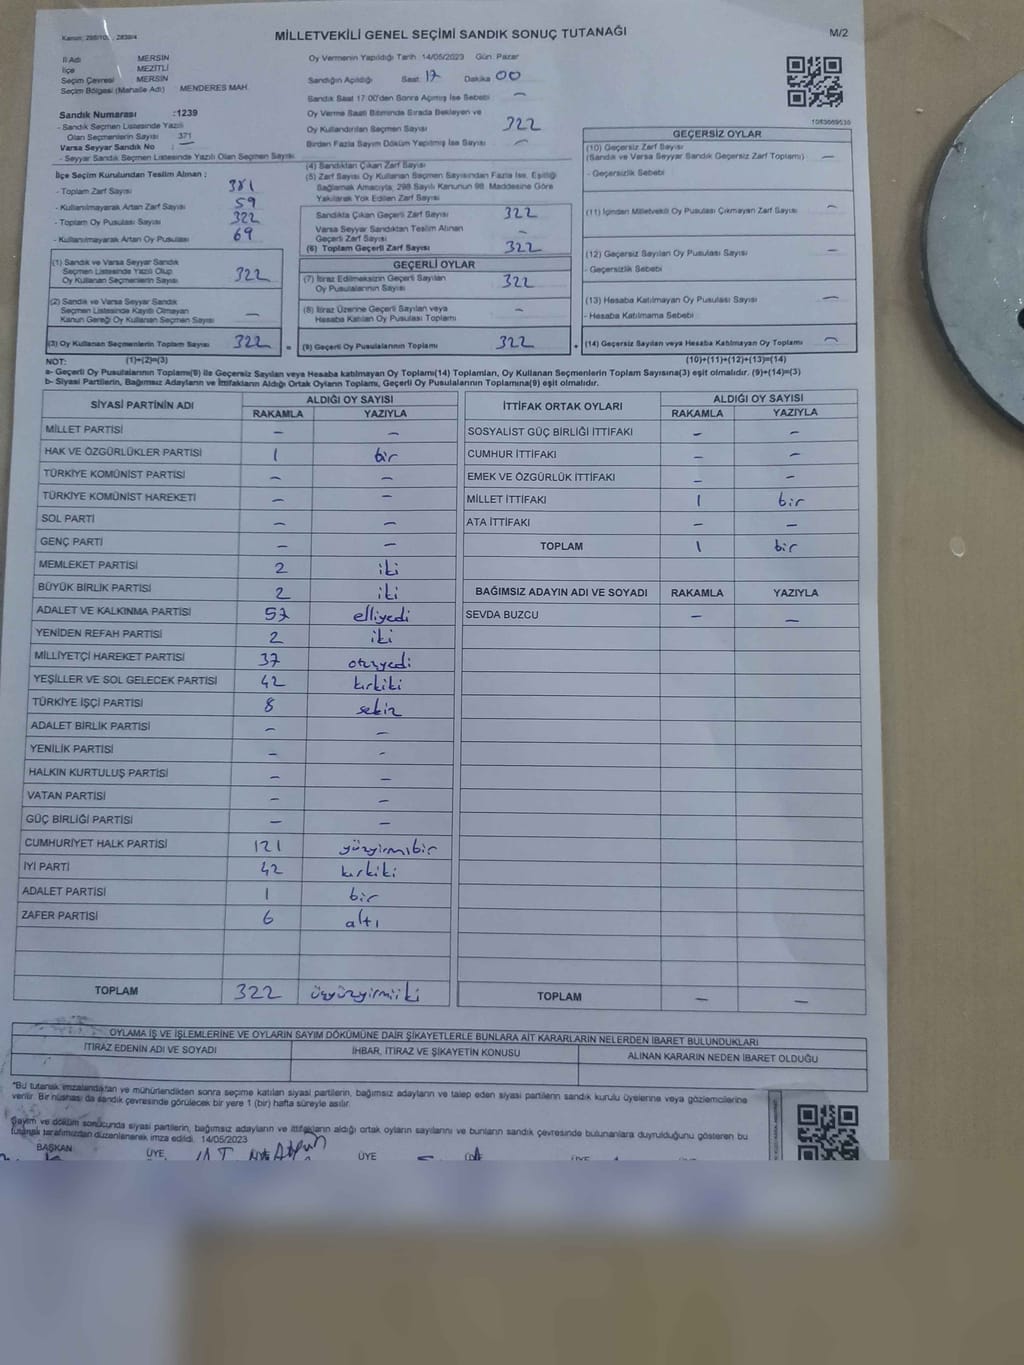 MİLLETVEKİLİ GENEL SEÇİMİ SANDIK SONUÇ TUTANAĞI
M/2
İl Adı MERSİN
İlçe MEZİTLİ
Seçim Çevresi MERSİN
Seçim Bölgesi (Mahalle Adı) MENDERES MAH.
Sandık Numarası :1239
- Sandık Seçmen Listesinde Yazılı
Olan Seçmenlerin Sayısı 371
Varsa Seyyar Sandık No : —
- Seyyar Sandık Seçmen Listesinde Yazılı Olan Seçmen Sayısı
Oy Vermenin Yapıldığı Tarih 14/05/2023 Gün Pazar
Sandığın Açıldığı Saat 17 Dakika 00
Sandık Saat 17:00'den Sonra Açımış İse Sebebi —
Oy Verme Saati Bitiminde Sırada Bekleyen ve
Oy Kullandırılan Seçmen Sayısı 322
Birden Fazla Sayım Döküm Yapılmış İse Sayısı —
İlçe Seçim Kurulundan Teslim Alınan :
- Toplam Zarf Sayısı 381
- Kullanılmayarak Artan Zarf Sayısı 59
- Toplam Oy Pusulası Sayısı 322
- Kullanılmayarak Artan Oy Pusulası 69
(1) Sandık ve Varsa Seyyar Sandık
Seçmen Listesinde Yazılı Olup
Oy Kullanan Seçmenlerin Sayısı 322
(2) Sandık ve Varsa Seyyar Sandık
Seçmen Listesinde Kayıtlı Olmayan
Kanun Gereği Oy Kullanan Seçmen Sayısı —
(3) Oy Kullanan Seçmenlerin Toplam Sayısı 322
(4) Sandıktan Çıkan Zarf Sayısı
(5) Zarf Sayısı Oy Kullanan Seçmen Sayısından Fazla İse, Eşitliği
Sağlamak Amacıyla, 298 Sayılı Kanunun 98. Maddesine Göre
Yakılarak Yok Edilen Zarf Sayısı
Sandıkla Çıkan Geçerli Zarf Sayısı 322
Varsa Seyyar Sandıktan Teslim Alınan
Geçerli Zarf Sayısı —
(6) Toplam Geçerli Zarf Sayısı 322
GEÇERLİ OYLAR
(7) İtiraz Edilmeksizin Geçerli Sayılan
Oy Pusulalarının Sayısı 322
(8) İtiraz Üzerine Geçerli Sayılan veya
Hesaba Katılan Oy Pusulası Toplamı —
= (9) Geçerli Oy Pusulalarının Toplamı 322
1083669530
GEÇERSİZ OYLAR
(10) Geçersiz Zarf Sayısı
(Sandık ve Varsa Seyyar Sandık Geçersiz Zarf Toplamı) —
- Geçersizlik Sebebi
(11) İçinden Milletvekili Oy Pusulası Çıkmayan Zarf Sayısı —
(12) Geçersiz Sayılan Oy Pusulası Sayısı —
- Geçersizlik Sebebi
(13) Hesaba Katılmayan Oy Pusulası Sayısı —
- Hesaba Katılmama Sebebi
+ (14) Geçersiz Sayılan veya Hesaba Katılmayan Oy Toplamı —
NOT: (1)+(2)=(3) (10)+(11)+(12)+(13)=(14)
a- Geçerli Oy Pusulalarının Toplamı(9) ile Geçersiz Sayılan veya Hesaba katılmayan Oy Toplamı(14) Toplamları, Oy Kullanan Seçmenlerin Toplam Sayısına(3) eşit olmalıdır. (9)+(14)=(3)
b- Siyasi Partilerin, Bağımsız Adayların ve İttifakların Aldığı Ortak Oyların Toplamı, Geçerli Oy Pusulalarının Toplamına(9) eşit olmalıdır.
SİYASİ PARTİNİN ADI ALDIĞI OY SAYISI
RAKAMLA YAZIYLA
MİLLET PARTİSİ — —
HAK VE ÖZGÜRLÜKLER PARTİSİ 1 bir
TÜRKİYE KOMÜNİST PARTİSİ — —
TÜRKİYE KOMÜNİST HAREKETİ — —
SOL PARTİ — —
GENÇ PARTİ — —
MEMLEKET PARTİSİ 2 iki
BÜYÜK BİRLİK PARTİSİ 2 iki
ADALET VE KALKINMA PARTİSİ 57 elliyedi
YENİDEN REFAH PARTİSİ 2 iki
MİLLİYETÇİ HAREKET PARTİSİ 37 otuzyedi
YEŞİLLER VE SOL GELECEK PARTİSİ 42 kırkiki
TÜRKİYE İŞÇİ PARTİSİ 8 sekiz
ADALET BİRLİK PARTİSİ — —
YENİLİK PARTİSİ — -
HALKIN KURTULUŞ PARTİSİ — —
VATAN PARTİSİ — —
GÜÇ BİRLİĞİ PARTİSİ — —
CUMHURİYET HALK PARTİSİ 121 yüzyirmibir
İYİ PARTİ 42 kırkiki
ADALET PARTİSİ 1 bir
ZAFER PARTİSİ 6 altı
TOPLAM 322 üçyüzyirmiiki
İTTİFAK ORTAK OYLARI ALDIĞI OY SAYISI
RAKAMLA YAZIYLA
SOSYALİST GÜÇ BİRLİĞİ İTTİFAKI — —
CUMHUR İTTİFAKI — —
EMEK VE ÖZGÜRLÜK İTTİFAKI — —
MİLLET İTTİFAKI 1 bir
ATA İTTİFAKI — —
TOPLAM 1 bir
BAĞIMSIZ ADAYIN ADI VE SOYADI RAKAMLA YAZIYLA
SEVDA BUZCU — —
TOPLAM — —
OYLAMA İŞ VE İŞLEMLERİNE VE OYLARIN SAYIM DÖKÜMÜNE DAİR ŞİKAYETLERLE BUNLARA AİT KARARLARIN NELERDEN İBARET BULUNDUKLARI
İTİRAZ EDENİN ADI VE SOYADI İHBAR, İTİRAZ VE ŞİKAYETİN KONUSU ALINAN KARARIN NEDEN İBARET OLDUĞU
*Bu tutanak imzalandıktan ve mühürlendikten sonra seçime katılan siyasi partilerin, bağımsız adayların ve talep eden siyasi partilerin sandık kurulu üyelerine veya gözlemcilerine
verilir. Bir nüshası da sandık çevresinde görülecek bir yere 1 (bir) hafta süreyle asılır.
Sayım ve döküm sonucunda siyasi partilerin, bağımsız adayların ve ittifakların aldığı ortak oyların sayılarını ve bunların sandık çevresinde bulunanlara duyrulduğunu gösteren bu
tutanak tarafımızdan düzenlenerek imza edildi. 14/05/2023
BAŞKAN ÜYE ÜYE